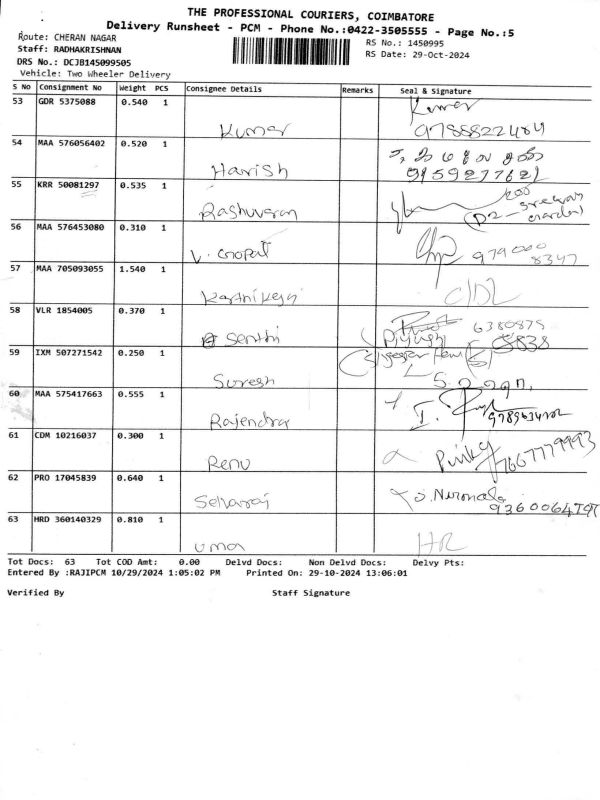 THE PROFESSIONAL COURIERS, COIMBATORE
Delivery Runsheet - PCM - Phone No.:0422-3505555 - Page No.:5
Route: CHERAN NAGAR
RS No.: 1450995
Staff: RADHAKRISHNAN
RS Date: 29-Oct-2024
DRS No.: DCJB145099505
Vehicle: Two Wheeler Delivery
S No Consignment No Weight PCS Consignee Details Remarks Seal & Signature
53 GDR 5375088 0.540 1 Kumar Kumar
9788822484
54 MAA 576056402 0.520 1 Harish
9159277621
55 KRR 50081297 0.535 1 Raghuvaran
56 MAA 576453080 0.310 1 V. Gopal 979000
8347
57 MAA 705093055 1.540 1 Karthikeyan C/DL
58 VLR 1854005 0.370 1 Senthi Piyush 6380875
8838
59 IXM 507271542 0.250 1 Suresh
60 MAA 575417663 0.555 1 Rajendra I.
61 CDM 10216037 0.300 1 Renu Pinky 7667779993
62 PRO 17045839 0.640 1 Selvaraj S. Nirmala
63 HRD 360140329 0.810 1 uma HR
Tot Docs: 63 Tot COD Amt: 0.00 Delvd Docs: Non Delvd Docs: Delvy Pts:
Entered By :RAJIPCM 10/29/2024 1:05:02 PM Printed On: 29-10-2024 13:06:01
Verified By Staff Signature